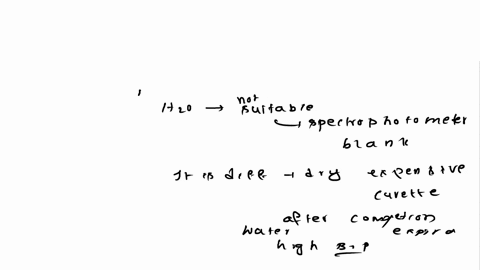 H2O → not suitable
spectrophotometer
blank
It is diff → dry expensive
cuvette
after
water
high B.P